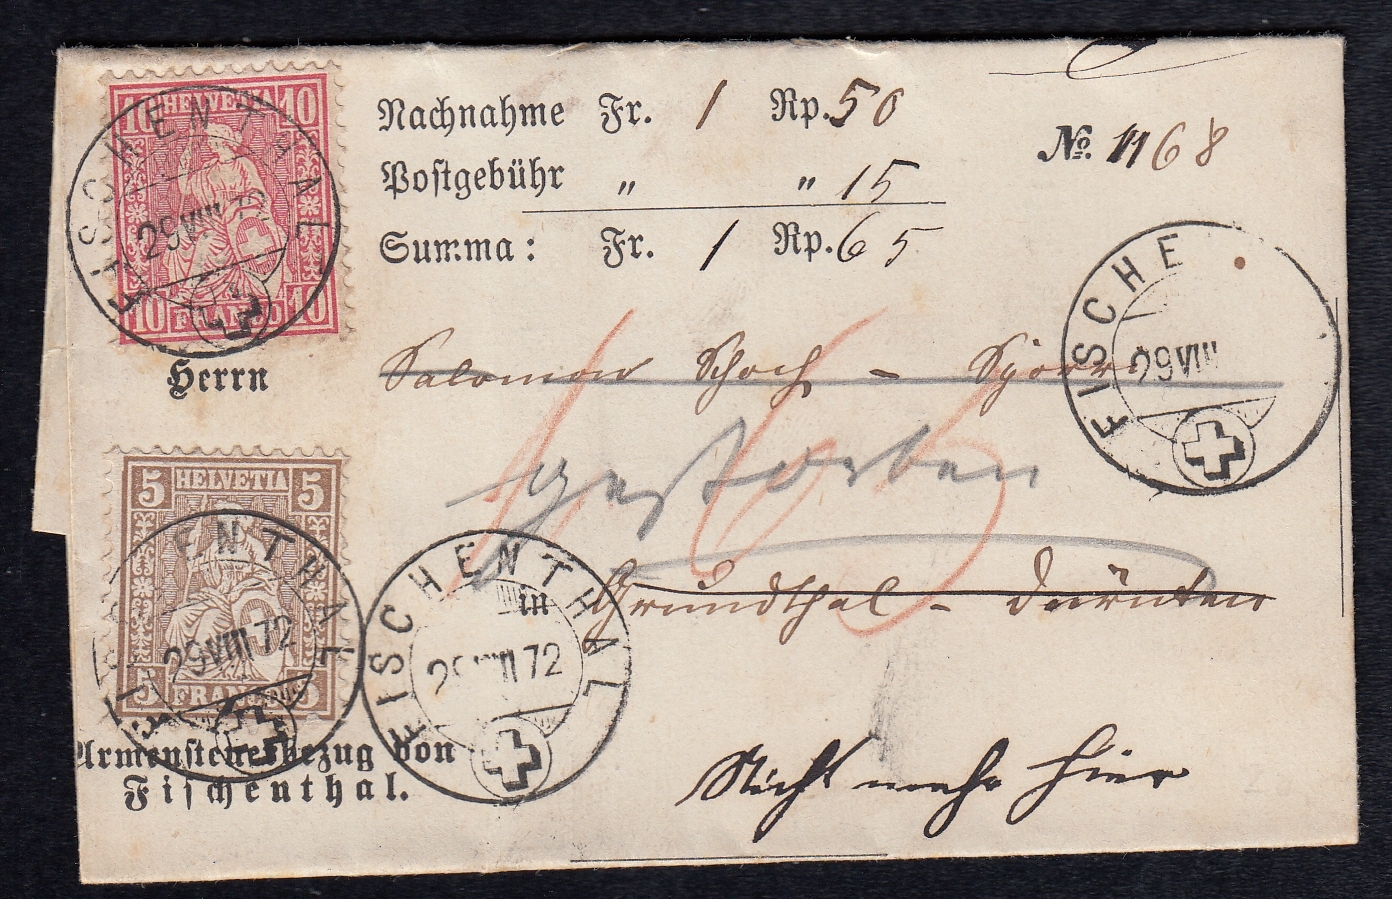 10 HELVETIA 10
10 FRANCO 10
FISCHENTHAL
29 VIII 72
Nachnahme Fr. 1 Rp. 50
Postgebühr „ „ 15
Summa: Fr. 1 Rp. 65
No. 1168
Herrn Salomon Schoch -
FISCHE
29 VIII
gestorben
165
5 HELVETIA 5
5 FRANCO 5
FISCHENTHAL
29 VIII 72
FISCHENTHAL
29 VIII 72
in Grundthal - Dürnten
Armensteuerbezug von
Fischenthal.
Nicht mehr hier